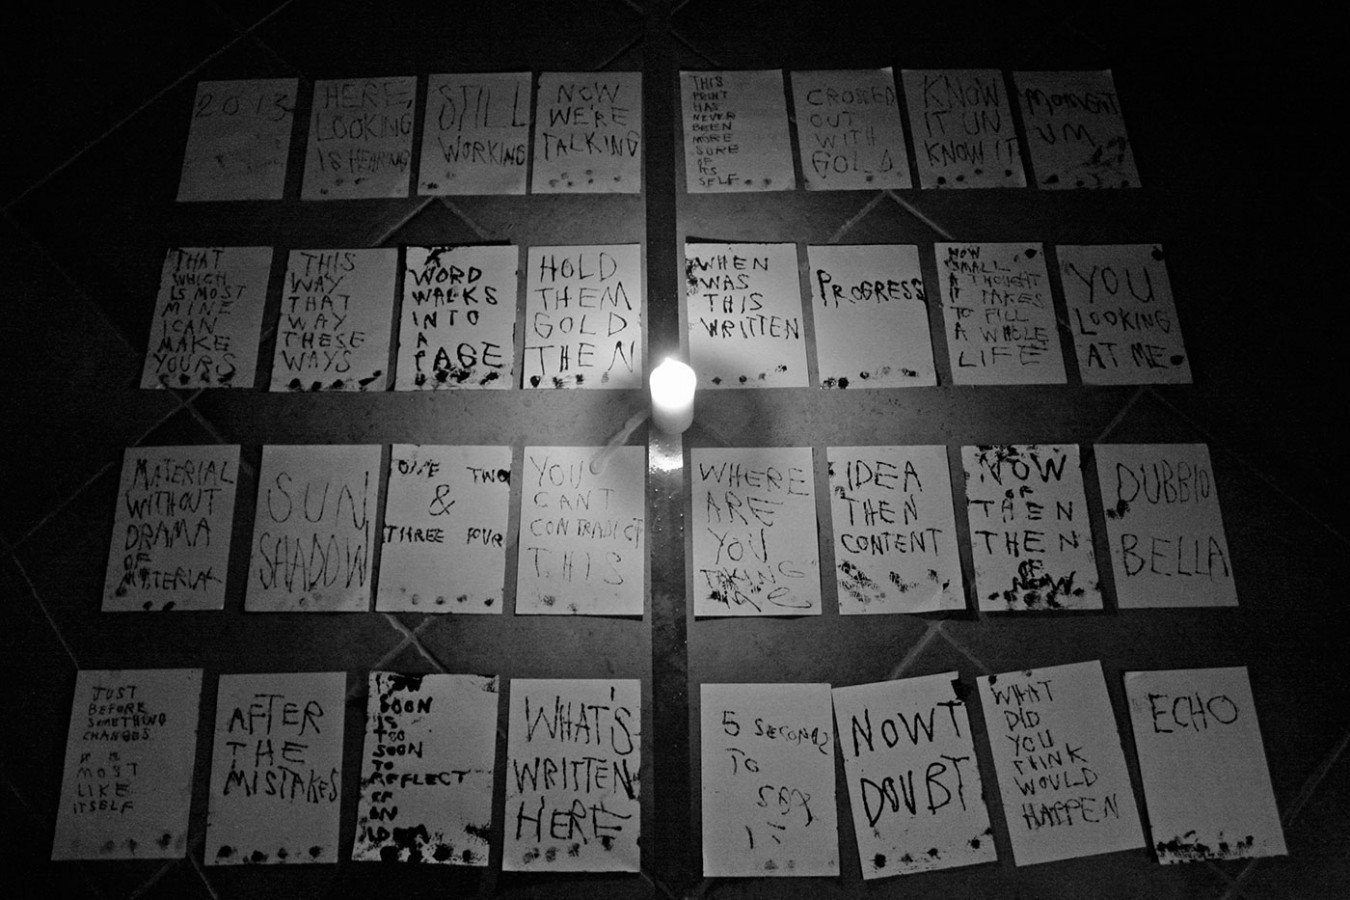 2013
HERE,
LOOKING
IS HEARING
STILL
WORKING
NOW
WE'RE
TALKING
THIS
PRINT
HAS
NEVER
BEEN
MORE
SURE
OF
ITS
SELF
CROSSED
OUT
WITH
GOLD
KNOW
IT UN
KNOW IT
MOMENT
UM
THAT
WHICH
IS MOST
MINE
I CAN
MAKE
YOURS
THIS
WAY
THAT
WAY
THESE
WAYS
WORD
WALKS
INTO
A
PAGE
HOLD
THEM
GOLD
THEN
WHEN
WAS
THIS
WRITTEN
PROGRESS
HOW
SMALL
A THOUGHT
IT TAKES
TO FILL
A WHOLE
LIFE
YOU
LOOKING
AT ME
MATERIAL
WITHOUT
DRAMA
OF
MATERIAL
SUN
SHADOW
ONE TWO
&
THREE FOUR
YOU
CANT
CONTRADICT
THIS
WHERE
ARE
YOU
TAKING
IDEA
THEN
CONTENT
NOW
OF
THEN
THEN
OF
NOW
DUBBIO
BELLA
JUST
BEFORE
SOMETHING
CHANGES
IT IS
MOST
LIKE
ITSELF
AFTER
THE
MISTAKES
SOON
IS
TOO
SOON
TO
REFLECT
ON
WHAT'S
WRITTEN
HERE
5 SECONDS
TO
SAY
NOWT
DOUBT
WHAT
DID
YOU
THINK
WOULD
HAPPEN
ECHO